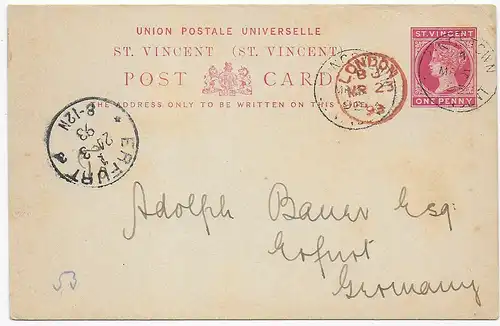 UNION POSTALE UNIVERSELLE
ST. VINCENT (ST. VINCENT)
POST CARD
THE ADDRESS ONLY TO BE WRITTEN ON THIS
ST. VINCENT
ONE PENNY
LONDON
MR 23
93
ERFURT
93
8-12N
Adolph Bauer Esq:
Erfurt
Germany
53